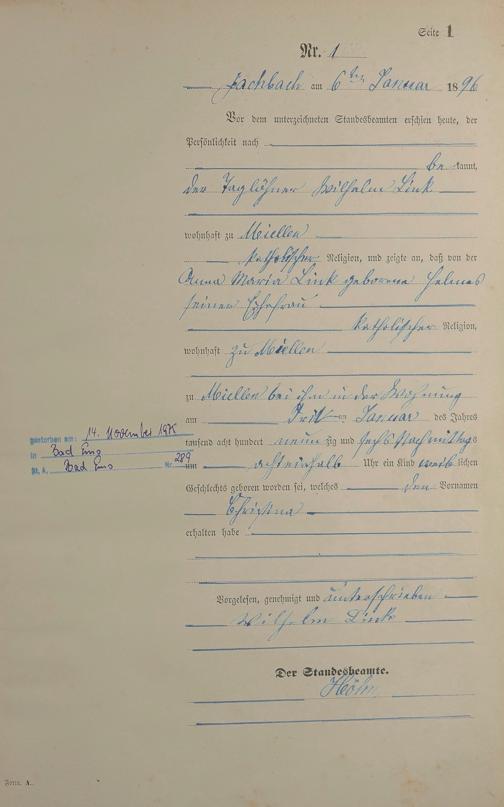 Seite 1
Nr. 1
Fachbach am 6ten Januar 1896
Vor dem unterzeichneten Standesbeamten erschien heute, der
Persönlichkeit nach
be kannt,
der Taglöhner Wilhelm Link
wohnhaft zu Miellen
katholischer Religion, und zeigte an, daß von der
Anna Maria Link geborene Helmes
seiner Ehefrau
katholischer Religion,
wohnhaft zu Miellen
zu Miellen bei ihm in der Wohnung
am Januar des Jahres
tausend acht hundert neun zig und sechs Nachmittags
um acht einhalb Uhr ein Kind weib lichen
Geschlechts geboren worden sei, welches den Vornamen
Christina
erhalten habe
Vorgelesen, genehmigt und unterschrieben
Wilhelm Link
Der Standesbeamte.
Höhn
gestorben am: 14. November 1975
in Bad Ems
St. A. Bad Ems Nr. 289
Form. A.